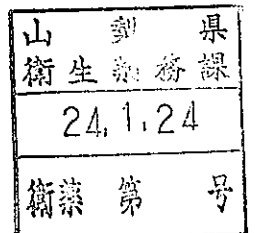 山梨県
衛生薬務課
24.1.24
衛薬第 号